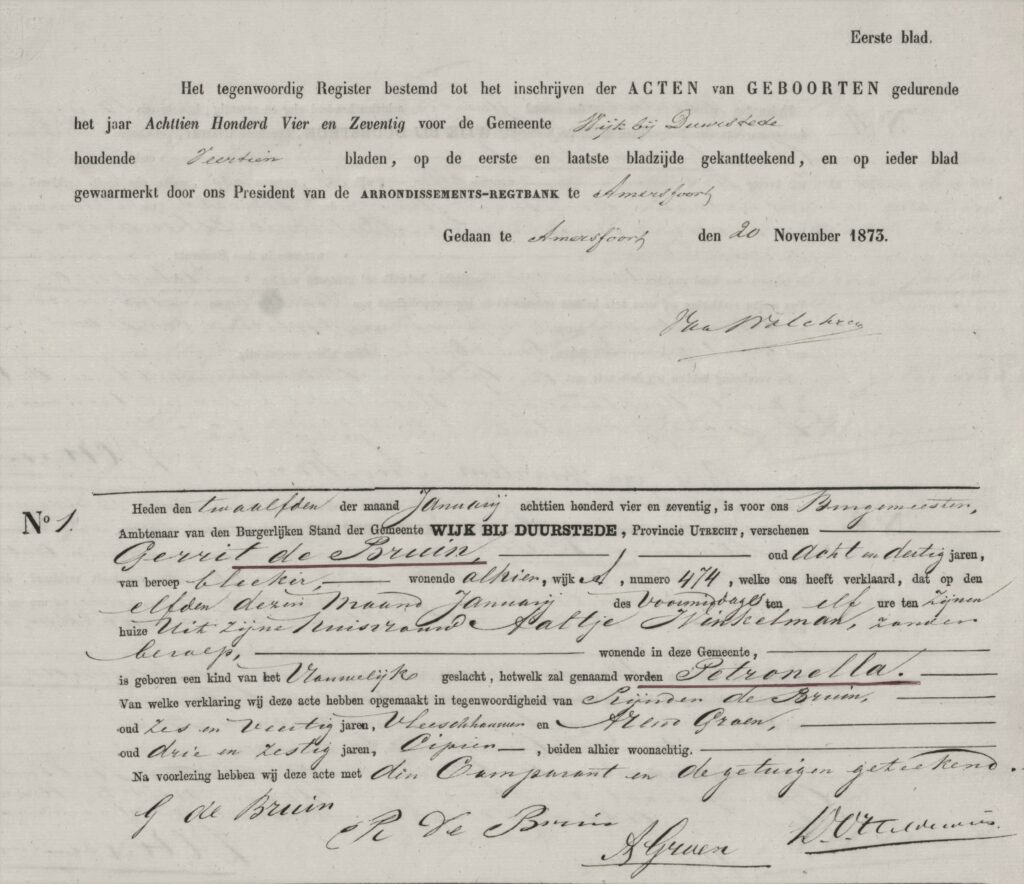 Eerste blad.
Het tegenwoordig Register bestemd tot het inschrijven der ACTEN van GEBOORTEN gedurende
het jaar Achttien Honderd Vier en Zeventig voor de Gemeente Wijk bij Duurstede
houdende Veertien bladen, op de eerste en laatste bladzijde gekantteekend, en op ieder blad
gewaarmerkt door ons President van de ARRONDISSEMENTS-REGTBANK te Amersfoort
Gedaan te Amersfoort den 20 November 1873.
Van
Nº 1.
Heden den twaalfden der maand Januarij achttien honderd vier en zeventig, is voor ons Burgemeester,
Ambtenaar van den Burgerlijken Stand der Gemeente WIJK BIJ DUURSTEDE, Provincie UTRECHT, verschenen
Gerrit de Bruin, oud Acht en dertig jaren,
van beroep bleeker, wonende alhier, wijk A, numero 474, welke ons heeft verklaard, dat op den
elfden dezer Maand Januarij des Voormiddags ten elf ure ten zijnen
huize Uit zijne huisvrouw Aaltje Winkelman, zonder
beroep, wonende in deze Gemeente,
is geboren een kind van het Vrouwelijk geslacht, hetwelk zal genaamd worden Petronella.
Van welke verklaring wij deze acte hebben opgemaakt in tegenwoordigheid van de Bruin,
oud Zes en Veertig jaren, Vleeschhouwer en Groen,
oud drie en Zestig jaren, Cipier, beiden alhier woonachtig.
Na voorlezing hebben wij deze acte met den Comparant en de getuigen geteekend.
G de Bruin
R De Bruin
A Groen